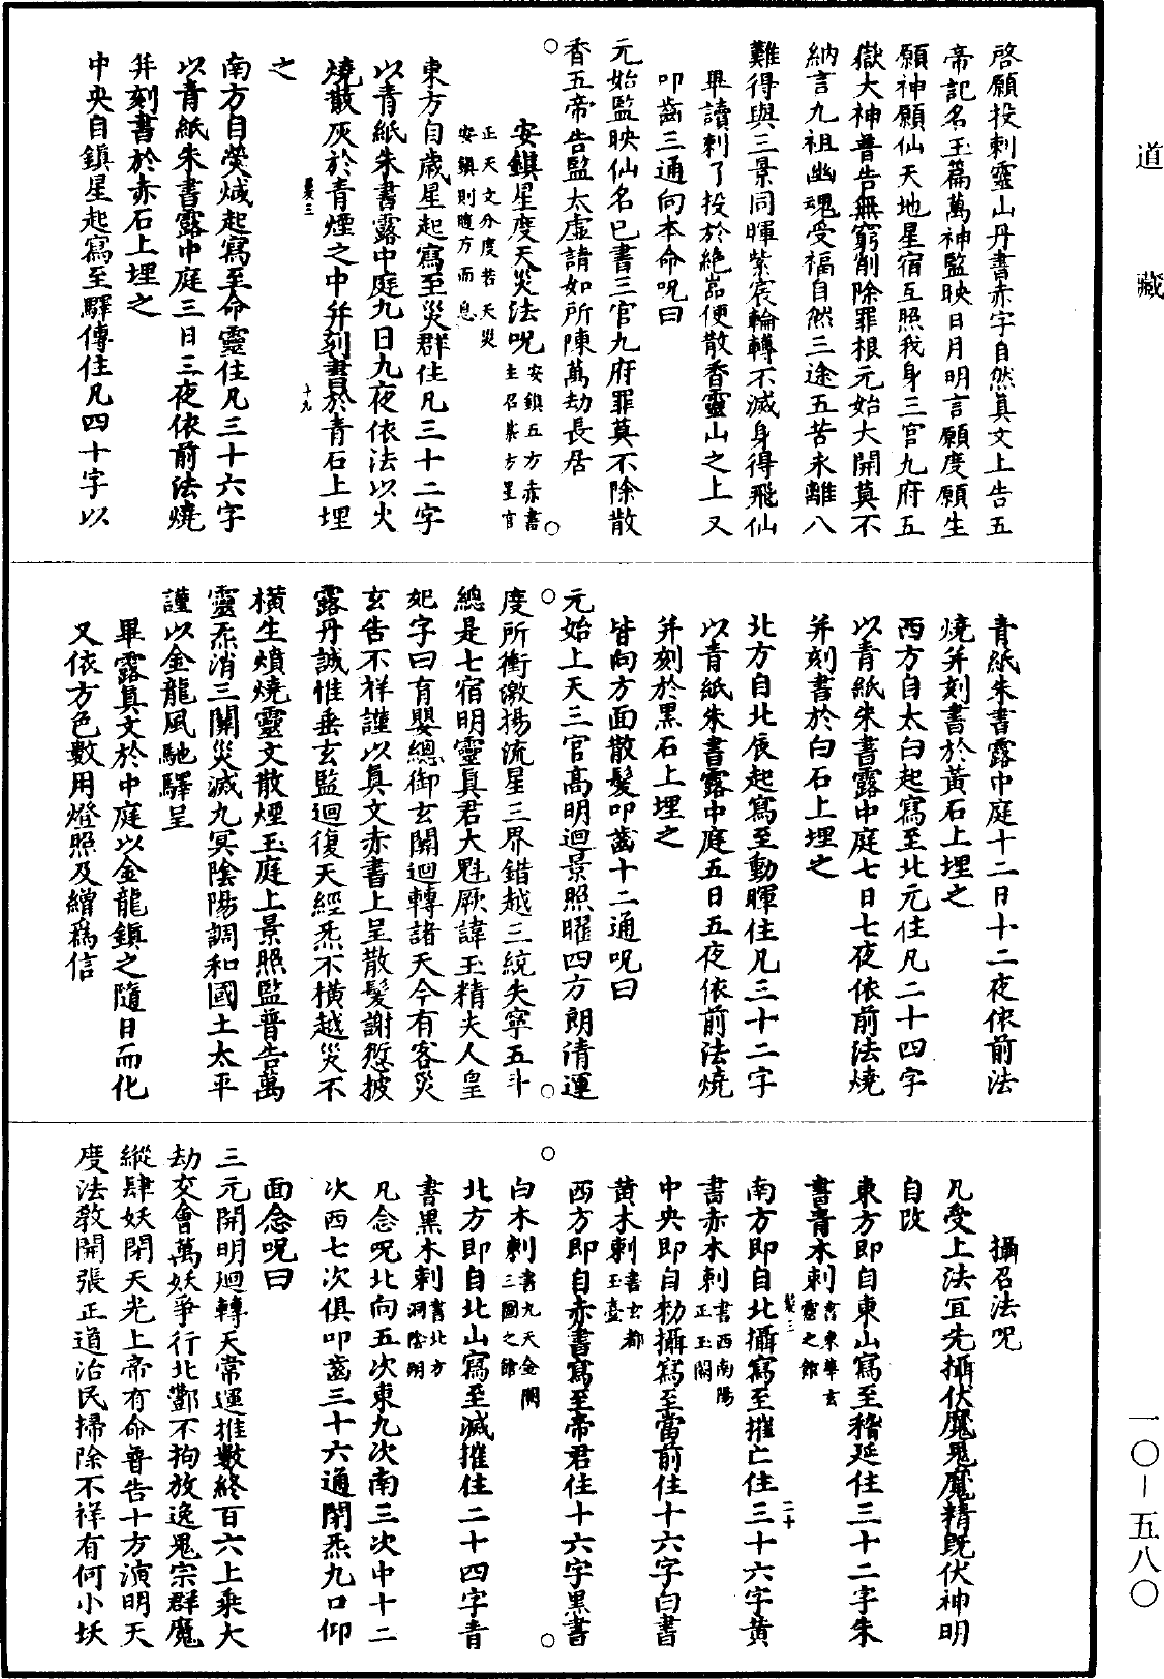 道藏
啓願投刺靈山丹書赤字自然真文上告五
帝記名玉篇萬神監映日月明言願度願生
願神願仙天地星宿互照我身三官九府五
嶽大神普告無窮削除罪根元始大開莫不
納言九祖幽魂受福自然三途五苦永離八
難得與三景同暉紫宸輪轉不滅身得飛仙
畢讀刺了投於絶嵓便散香靈山之上又
叩齒三通向本命呪曰
元始監映仙名已書三官九府罪莫不除散
香五帝告監太虛請如所陳萬劫長居
安鎮星度天災法呪安鎮五方赤書主召柴方星官
正天文分度若天災安鎮則隨方而息
東方自歲星起寫至災群住凡三十二字
以青紙朱書露中庭九日九夜依法以火
燒散灰於青煙之中并刻書於青石上埋
之
南方自熒惑起寫至命靈住凡三十六字
以青紙朱書露中庭三日三夜依前法燒
并刻書於赤石上埋之
中央自鎮星起寫至驛傳住凡四十字以
青紙朱書露中庭十二日十二夜依前法
燒并刻書於黃石上埋之
西方自太白起寫至北元住凡二十四字
以青紙朱書露中庭七日七夜依前法燒
并刻書於白石上埋之
北方自北辰起寫至動暉住凡三十二字
以青紙朱書露中庭五日五夜依前法燒
并刻於黑石上埋之
皆向方面散髮叩齒十二通呪曰
元始上天三官高明迴景照曜四方朗清運
度所衝激揚流星三界錯越三統失寧五斗
總是七宿明靈真君大魁厥諱玉精夫人皇
妃字曰育嬰總御玄關迴轉諸天今有客災
玄告不祥謹以真文赤書上呈散髮謝愆披
露丹誠惟垂玄監迴復天經炁不橫越災不
橫生熉燒靈文散煙玉庭上景照監普告萬
靈炁消三關災滅九冥陰陽調和國土太平
謹以金龍風馳驛呈
畢露真文於中庭以金龍鎮之隨日而化
又依方色數用燈照及繒爲信
攝召法呪
凡受上法宜先攝伏魔鬼魔精既伏神明
自改
東方即自東山寫至稽延住三十二字朱
書青木刺書東華玄靈之館
南方即自北攝寫至摧亡住三十六字黃
書赤木刺書西南陽正玉闕
中央即自勑攝寫至當前住十六字白書
黃木刺書玄都玉臺
西方即自赤書寫至帝君住十六字黑書
白木刺書九天金闕三圖之館
北方即自北山寫至滅摧住二十四字青
書黑木刺書北方洞陰朔
凡念呪北向五次東九次南三次中十二
次西七次俱叩齒三十六通閉炁九口仰
面念呪曰
三元開明迴轉天常運推數終百六上乘大
劫交會萬妖爭行北酆不拘放逸鬼宗群魔
縱肆妖閉天光上帝有命普告十方演明天
度法教開張正道治民掃除不祥有何小妖
一〇—五八〇